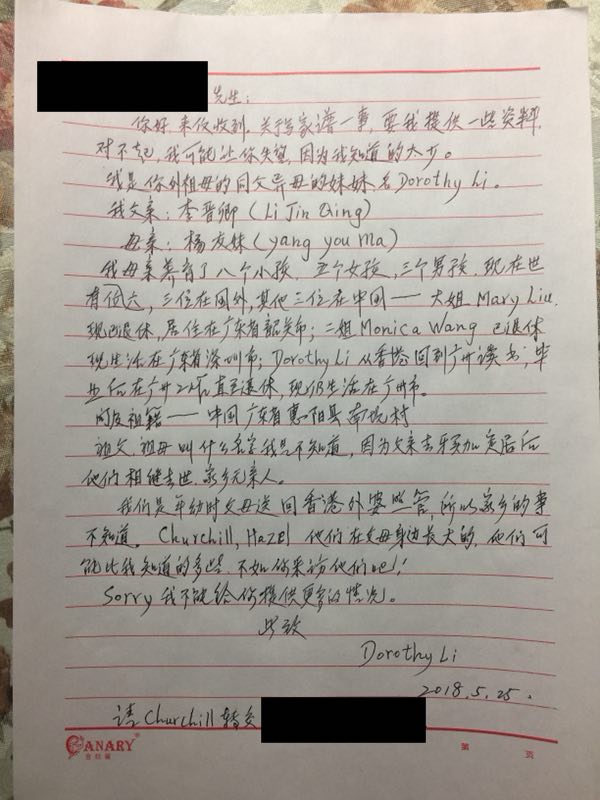 先生:
你好,来信收到,关于家谱一事,要我提供一些资料,
对不起,我可能让你失望,因为我知道的太少。
我是你外祖母的同父异母的妹妹名Dorothy Li。
我父亲:李晋卿(Li Jin Qing)
母亲:杨友妹(yang you Ma)
我母亲养育了八个小孩,五个女孩,三个男孩,现在世
有六位,三位在国外,其他三位在中国——大姐Mary Liu,
现已退休,居住在广东省韶关市;二姐Monica Wang 已退休
现生活在广东省深圳市;Dorothy Li 从香港回到广州读书,毕
业后在广州工作直至退休,现仍生活在广州市。
祖籍——中国广东省惠阳县
祖父、祖母叫什么名字我是不知道,因为父亲去牙买加定居后
他们相继去世,家乡无亲人。
我们是年幼时父母送回香港外婆照管,所以家乡的事
不知道。Churchill, Hazel 他们在父母身边长大的,他们可
能比我知道的多些,不如你来访他们吧!
Sorry 我不能给你提供更多的情况。
此致
Dorothy Li
2018.5.25.
请Churchill转交
CANARY
第 页